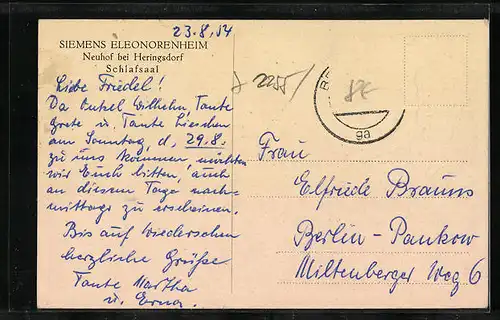 23.8.54
SIEMENS ELEONORENHEIM
Neuhof bei Heringsdorf
Schlafsaal
Liebe Friedel!
Da Onkel Wilhelm, Tante
Grete u. Tante Lieschen
am Sonntag, d. 29.8.
zu uns kommen möchten
wir Euch bitten, auch
an diesem Tage nach-
mittags zu erscheinen.
Bis auf Wiedersehen
herzliche Grüße
Tante Martha
u. Erna.
2255/
BE
ga
Frau
Elfriede Brauns
Berlin-Pankow
Miltenberger Weg 6